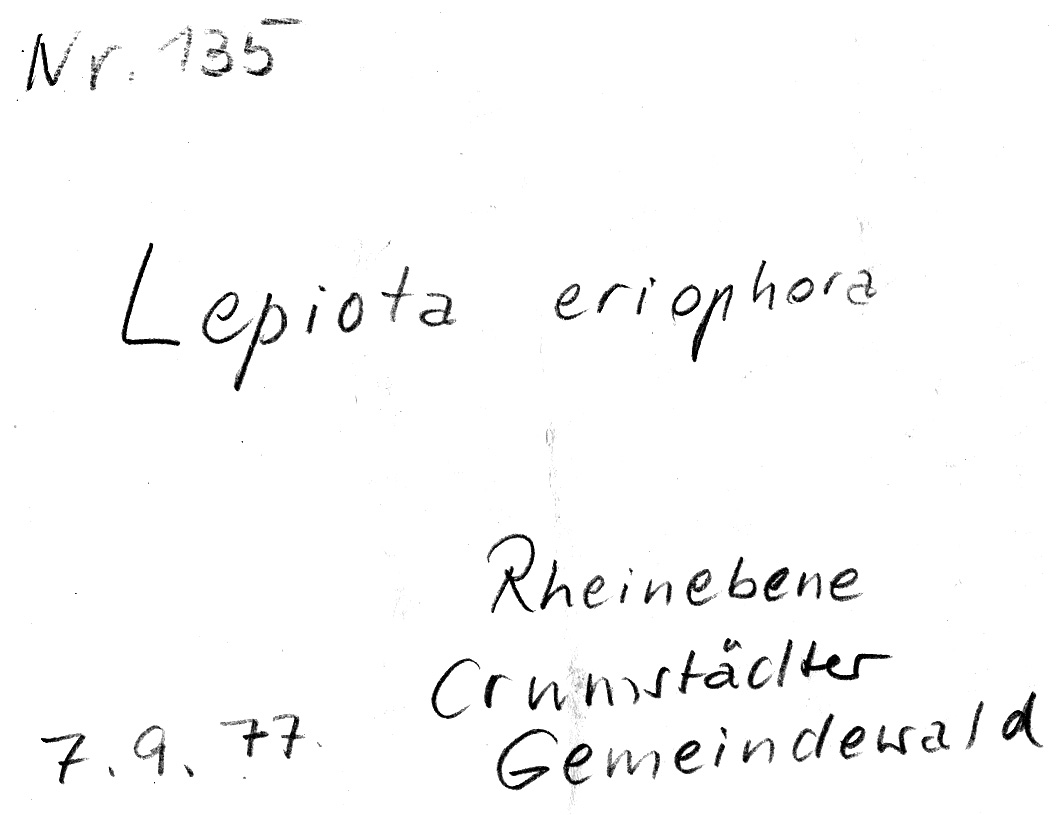 Nr. 135
Lepiota eriophora
Rheinebene
Crumstädter
Gemeindewald
7.9.77.